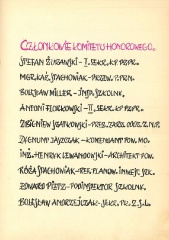 CZŁONKOWIE KOMITETU HONOROWEGO.
STEFAN ŻURAWSKI – I. SEKR. KP PZPR.
MGR. KAZ. STACHOWIAK – PRZEW. P. PRN.
BOLESŁAW MILLER – INSP. SZKOLN.
ANTONI FLORKOWSKI – II. SEKR. KP PZPR.
ZBIGNIEW – PREZ. ZARZ. ODDZ. Z.N.P.
ZYGMUNT JASZCZAK – KOMENDANT POW. MO.
INŻ. HENRYK LEWANDOWSKI – ARCHITEKT POW.
RÓŻA STACHOWIAK – REF. PLANOW. INWEST. SZK.
EDWARD PIETZ – PODINSPEKTOR SZKOLN.
BOLESŁAW ANDRZEJCZAK – SEKR. PK. Z.S.L.